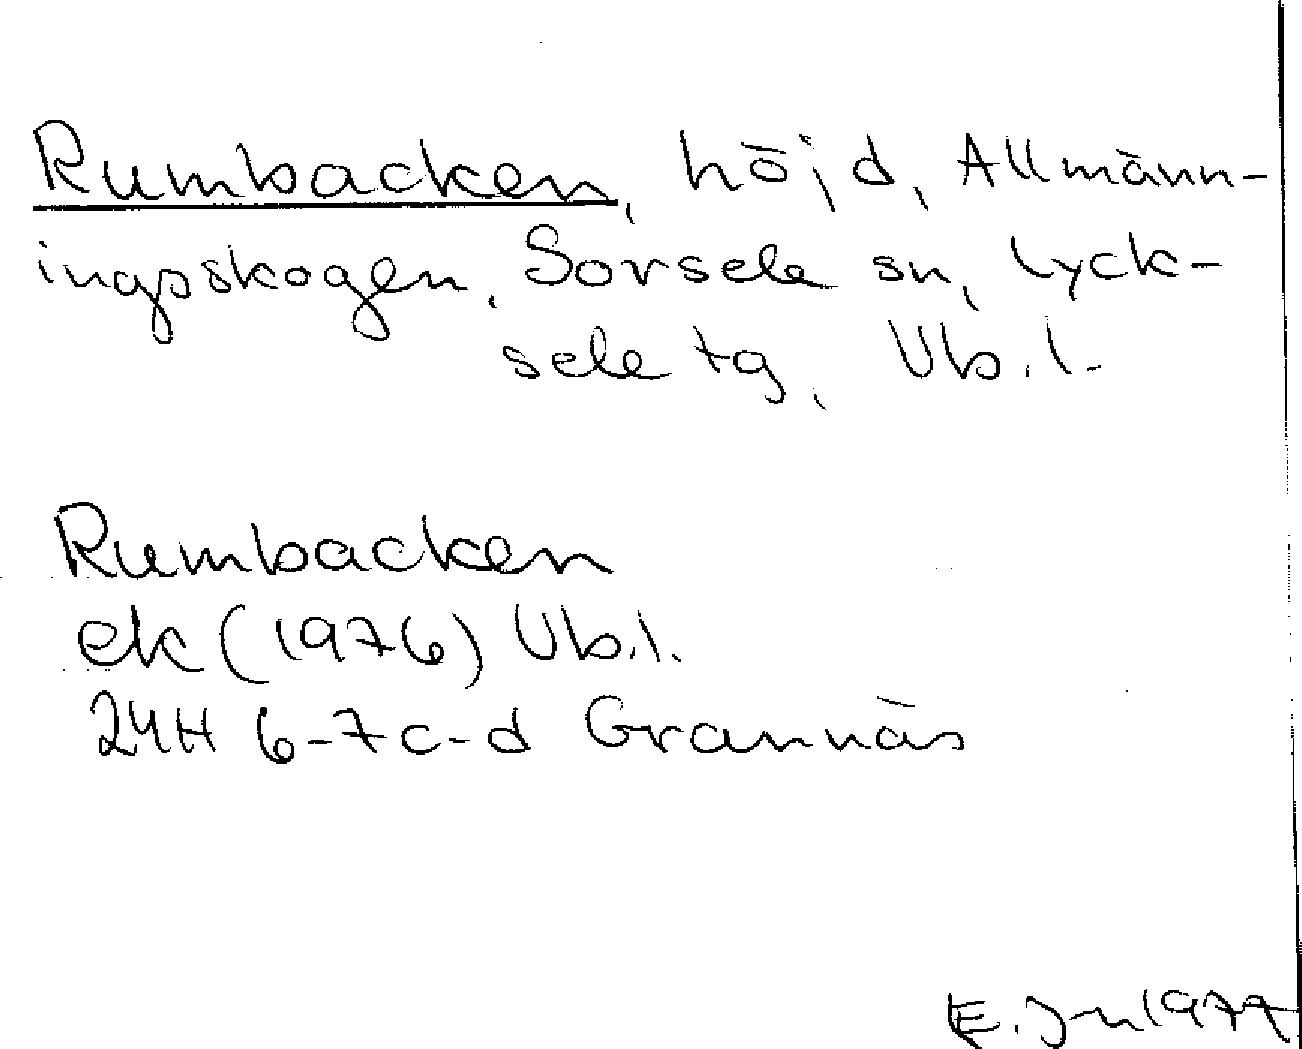 Rumbacken, höjd, Allmänn-
ingsskogen, Sorsele sn, Lyck-
sele tg, Vb.l.
Rumbacken
ek (1976) Vb.l.
24H 6-7c-d Grannäs
E. Jn 1977